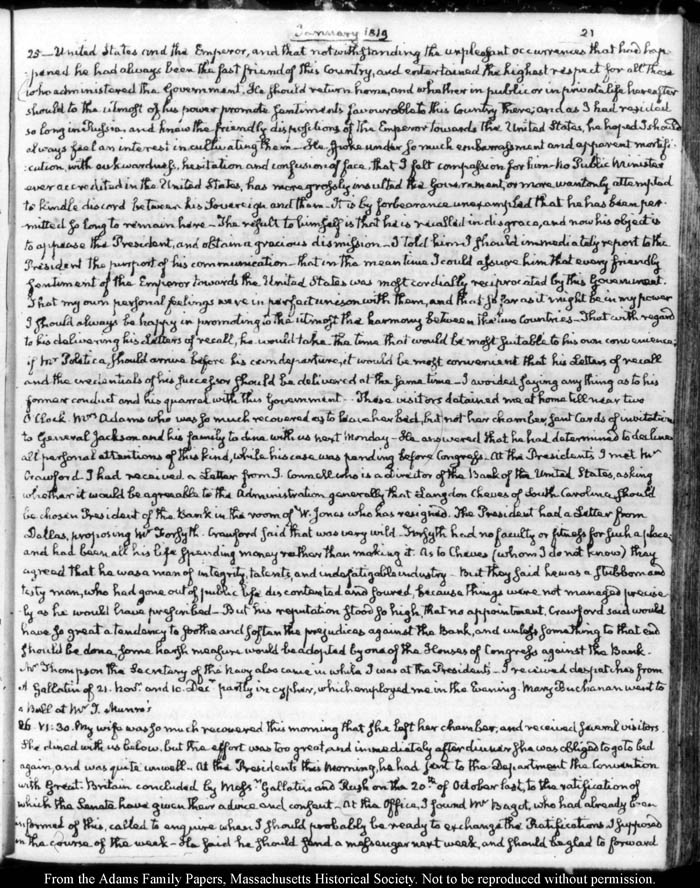 January 1819
21
25 — United States and the Emperor, and that notwithstanding the unpleasant occurrences that had hap-
-pened he had always been the fast friend of this Country, and entertained the highest respect for all those
who administered the Government. He should return home, and whether in public or in private life hereafter
should to the utmost of his power promote sentiments favourable to this Country there; and as I had resided
so long in Russia, and knew the friendly dispositions of the Emperor towards the United States, he hoped I should
always feel an interest in cultivating them — He spoke under so much embarrassment and apparent mortifi-
-cation, with awkwardness, hesitation and confusion of face, that I felt compassion for him — No Public Minister
ever accredited in the United States, has more grossly insulted the Government, or more wantonly attempted
to kindle discord between his Sovereign and them — It is by forbearance unexampled that he has been per-
mitted so long to remain here — The result to himself is that he is recalled in disgrace, and now his object is
to appease the President, and obtain a gracious dismission — I told him I should immediately report to the
President the purport of his communication — that in the mean time I could assure him that every friendly
sentiment of the Emperor towards the United States was most cordially reciprocated by this Government.
That my own personal feelings were in perfect unison with them, and that so far as it might be in my power
I should always be happy in promoting to the utmost the harmony between the two Countries — That with regard
to his delivering his Letters of recall, he would take the time that would be most suitable to his own convenience;
if Mr Poletica, should arrive before his own departure, it would be most convenient that his Letters of recall
and the credentials of his successor should be delivered at the same time — I avoided saying any thing as to his
former conduct and his quarrel with this Government. — These visitors detained me at home till near two
O'Clock. Mrs Adams who was so much recovered as to leave her bed, but not her chamber, sent Cards of invitation
to General Jackson and his family to dine with us next Monday — He answered that he had determined to decline
all personal attentions of this kind, while his case was pending before Congress. At the Presidents I met Mr
Crawford. I had received a Letter from J. Connell who is a director of the Bank of the United States, asking
whether it would be agreeable to the Administration generally that Langdon Cheves of South Carolina, should
be chosen President of the Bank in the room of W. Jones who has resigned. The President had a Letter from
Dallas, proposing Mr Forsyth. Crawford said that was very wild — Forsyth had no faculty or fitness for such a place;
and had been all his life spending money rather than making it. As to Cheves (whom I do not know) they
agreed that he was a man of integrity, talents, and indefatigable industry — But they said he was a stubborn and
testy man, who had gone out of public life discontented and soured, because things were not managed precise-
ly as he would have prescribed — But his reputation stood so high, that no appointment, Crawford said would
have so great a tendency to soothe and soften the prejudices against the Bank, and unless something to that end
should be done, some harsh measure would be adopted by one of the Houses of Congress against the Bank.
Mr Thompson the Secretary of the Navy also came in while I was at the Presidents — I received despatches from
A Gallatin of 21. Novr and 10. Decr partly in cypher, which employed me in the Evening. Mary Buchanan went to
a Ball at Mr T. Munro's
26. VI: 30. My wife was so much recovered this morning that she left her chamber, and received several visitors.
She dined with us below, but the effort was too great, and immediately after dinner she was obliged to go to bed
again, and was quite unwell — At the Presidents this Morning, he had sent to the Department the Convention
with Great-Britain concluded by Messrs Gallatin and Rush on the 20th of October last, to the ratification of
which the Senate have given their advice and consent — At the Office, I found Mr Bagot, who had already been
informed of this, called to enquire when I should probably be ready to exchange the Ratifications. I supposed
in the course of the week — He said he should send a messenger next week, and should be glad to forward
From the Adams Family Papers, Massachusetts Historical Society. Not to be reproduced without permission.